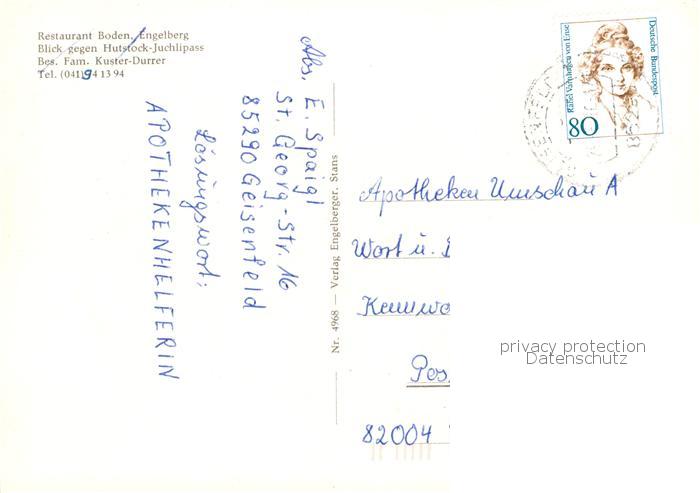 Restaurant Boden, Engelberg
Blick gegen Hutstock-Juchlipass
Bes. Fam. Kuster-Durrer
Tel. (041) 94 13 94
Abs. E. Spaigl
St. Georg-Str. 16
85290 Geisenfeld
Lösungswort:
APOTHEKENHELFERIN
Nr. 4968 — Verlag Engelberger, Stans
Deutsche Bundespost
Rahel Varnhagen von Ense
80
Apotheken Umschau A
Wort u.
Pos
82004
privacy protection
Datenschutz